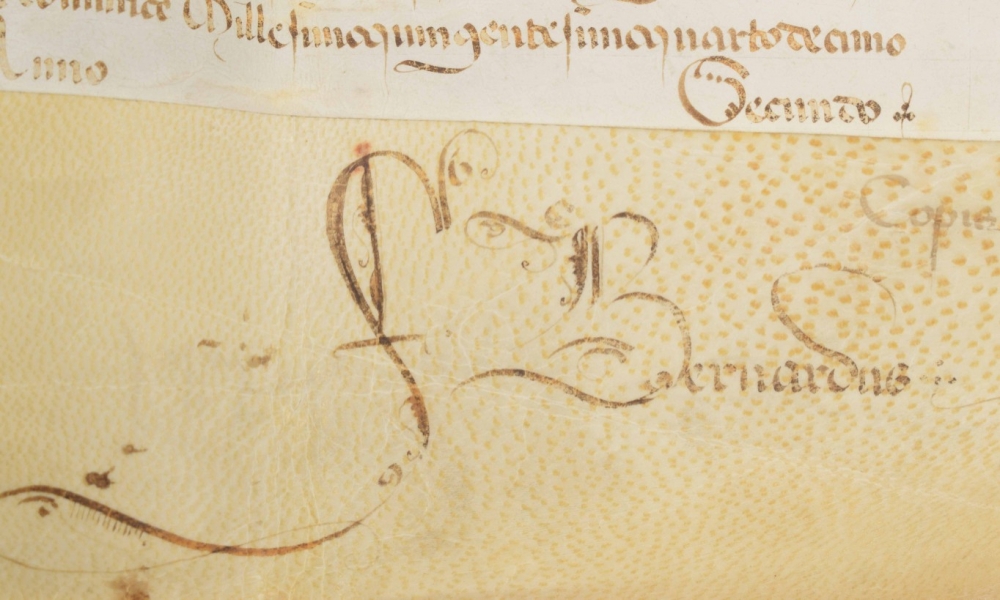 dominice Millesimoquingentesimoquartodecimo
Anno
Secundo
Bernardus